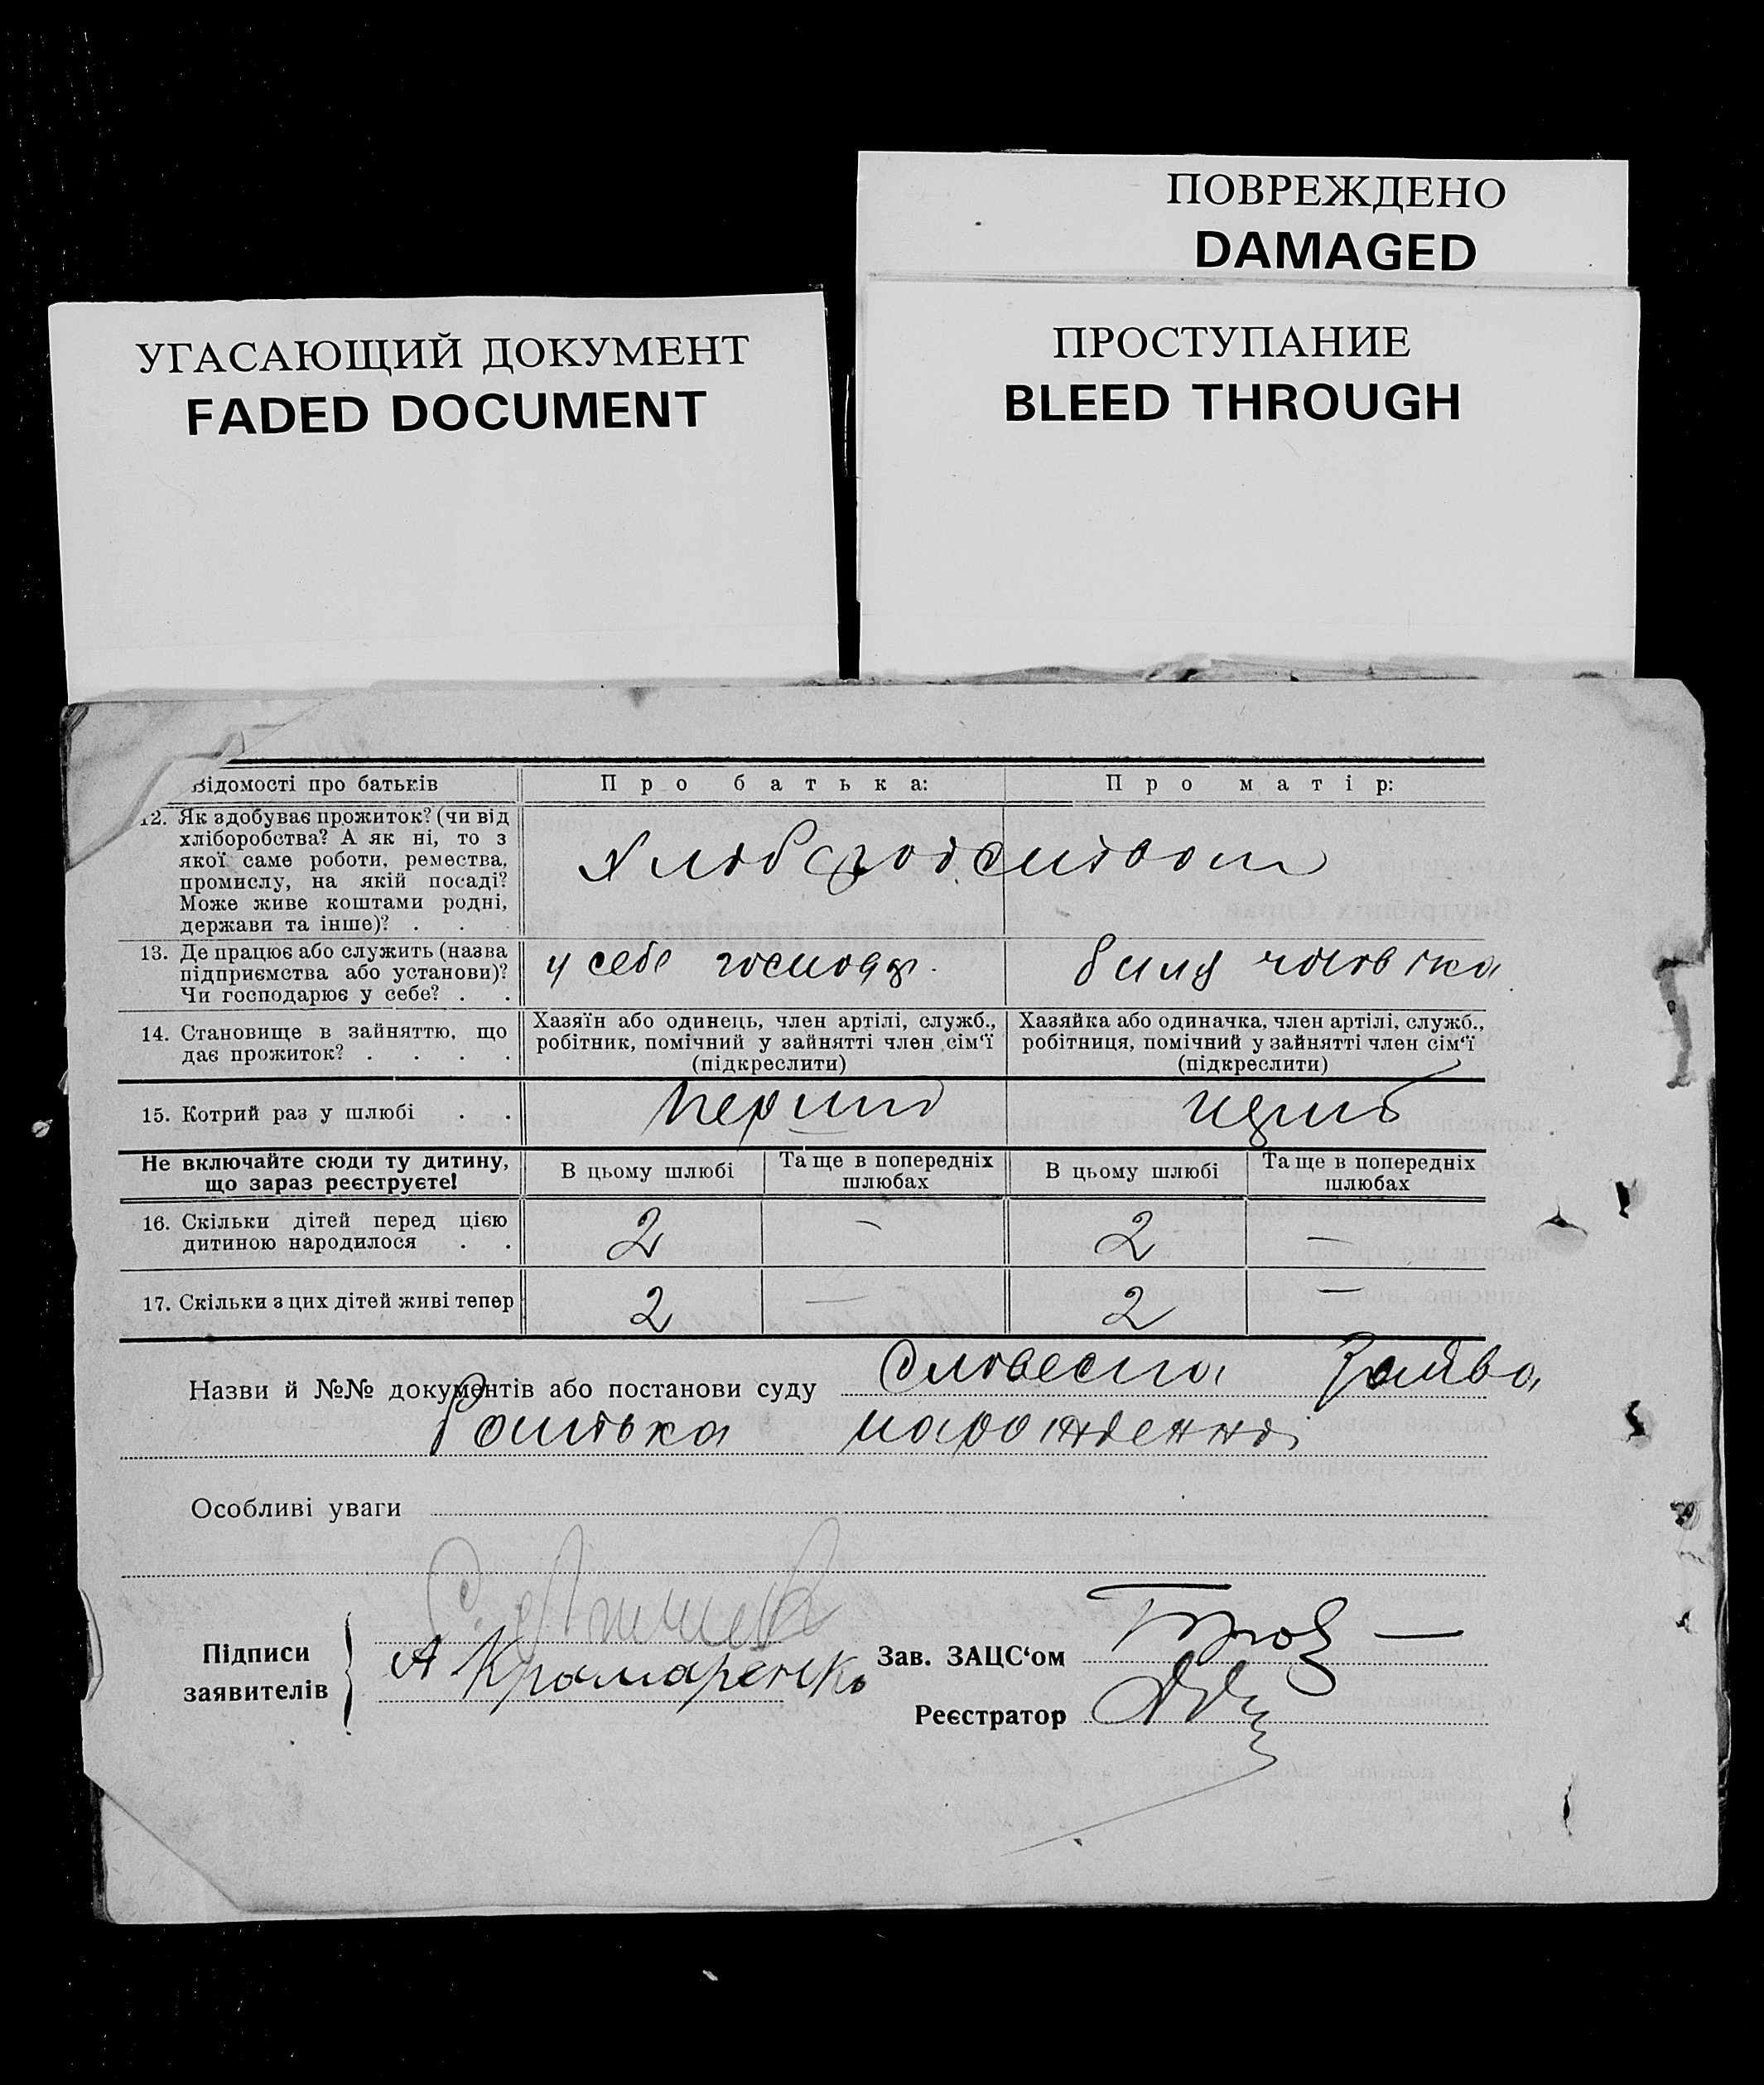 ПОВРЕЖДЕНО
DAMAGED
УГАСАЮЩИЙ ДОКУМЕНТ
FADED DOCUMENT
ПРОСТУПАНИЕ
BLEED THROUGH
Відомості про батьків
Про батька:
Про матір:
12. Як здобуває прожиток? (чи від
хліборобства? А як ні, то з
якої саме роботи, ремества,
промислу, на якій посаді?
Може живе коштами родні,
держави та інше)? . .
13. Де працює або служить (назва
підприємства або установи)?
Чи господарює у себе? . .
у себе
чоловіка
14. Становище в зайняттю, що
дає прожиток? . . . .
Хазяїн або одинець, член артілі, служб.,
робітник, помічний у зайнятті член сім‘ї
(підкреслити)
Хазяйка або одиначка, член артілі, служб.,
робітниця, помічний у зайнятті член сім‘ї
(підкреслити)
15. Котрий раз у шлюбі . .
Не включайте сюди ту дитину,
що зараз реєструєте!
В цьому шлюбі
Та ще в попередніх
шлюбах
В цьому шлюбі
Та ще в попередніх
шлюбах
16. Скільки дітей перед цією
дитиною народилося . .
2 – 2 –
17. Скільки з цих дітей живі тепер
2 – 2 –
Назви й №№ документів або постанови суду Словесна
Батька
Особливі уваги
Підписи
заявителів
А Крамаренко
Зав. ЗАЦС‘ом
Реєстратор